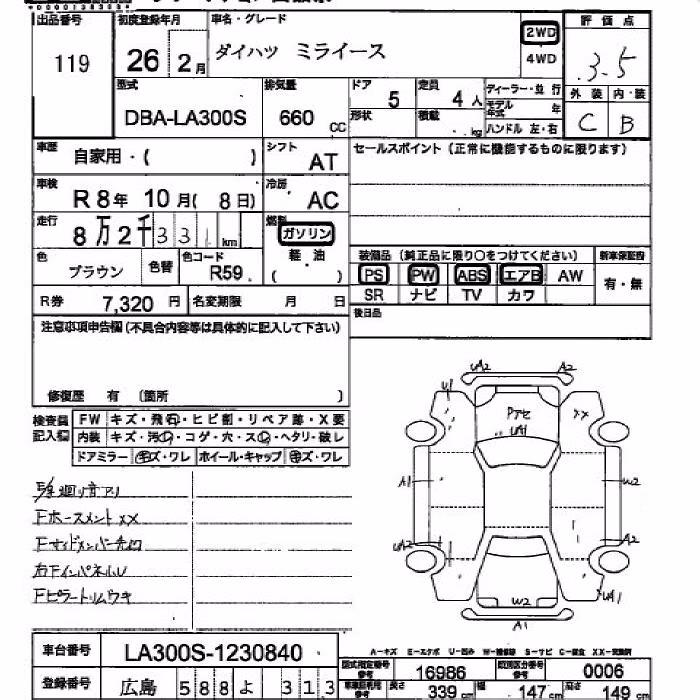 出品番号 119
初度登録年月 26年 2月
車名・グレード ダイハツ ミライース
2WD
4WD
評価点 3.5
型式 DBA-LA300S
排気量 660 cc
ドア 5
定員 4人
形状
積載 kg
ディーラー・並行
モデル年式 年
ハンドル 左・右
外装 C
内・装 B
車歴 自家用・( )
シフト AT
セールスポイント(正常に機能するものに限ります)
車検 R 8年 10月( 8日)
冷房 AC
走行 8万2千331km
燃料 ガソリン
軽・油
( )
色 ブラウン
色替
色コード R59
装備品(純正品に限り○をつけてください)
新車保証書
PS PW ABS エアB AW
有・無
SR ナビ TV カワ
R券 7,320円
名変期限 月 日
後日品
注意事項申告欄(不具合内容等は具体的に記入して下さい)
修復歴 有 〔箇所 〕
検査員記入欄
FW キズ・飛石・ヒビ割・リペア跡・X要
内装 キズ・汚レ・コゲ・穴・スレ・ヘタリ・破レ
ドアミラー キズ・ワレ ホイール・キャップ キズ・ワレ
UA2 A2
U1
Pアセ
UA1
XX
A1
U2
UA2
A2
W2
UA1
A1
Fホースメント XX
Fサイドメンバー先凹
右FインパネルU
Fピラートリムウキ
車台番号 LA300S-1230840
登録番号 広島 588 よ 313
A-キズ E-エクボ U-凹み W-補修跡 S-サビ C-腐食 XX-交換済
型式指定番号 参考 16986
類別区分番号 参考 0006
長さ 339 cm
幅 147 cm
高さ 149 cm